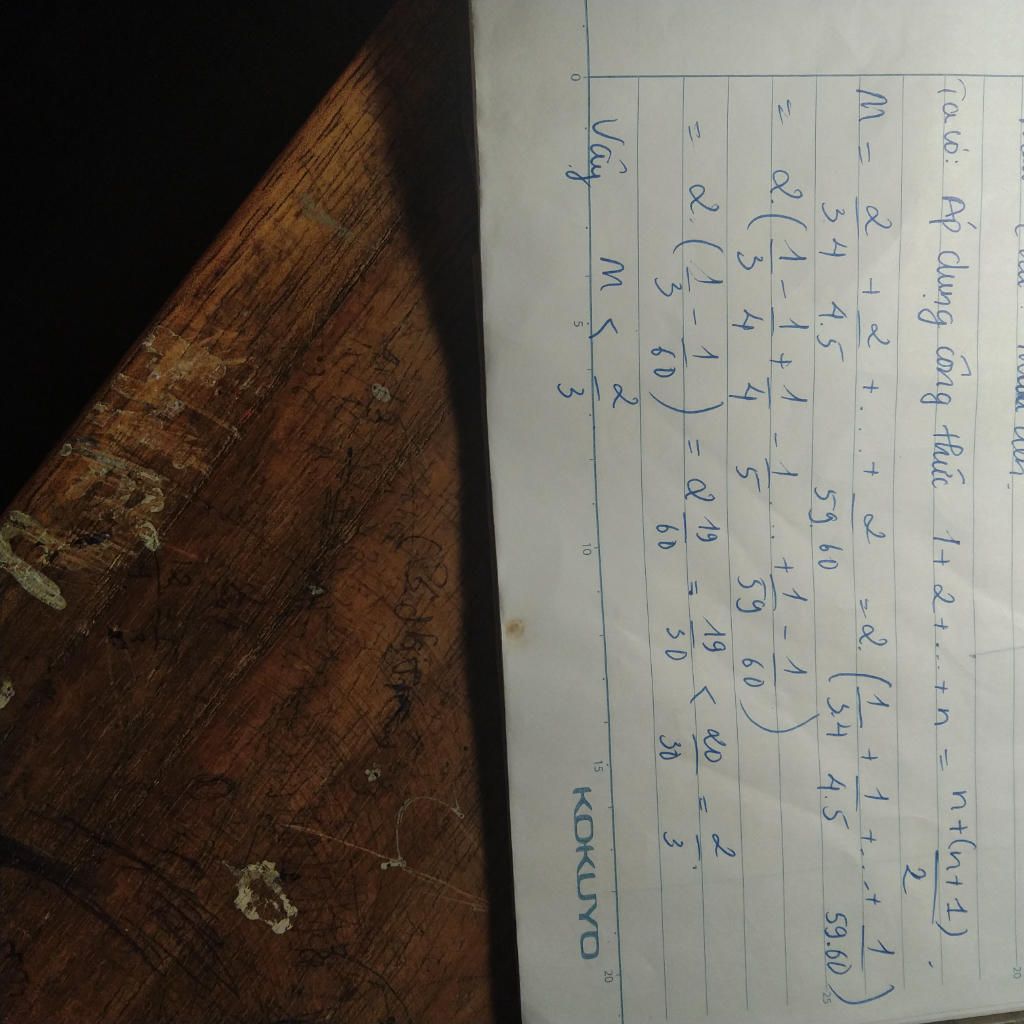 Ta có: Áp dụng công thức 1+2+...+n = n+(n+1)/2.
M = 2/3.4 + 2/4.5 + ... + 2/59.60 = 2.(1/3.4 + 1/4.5 + ... + 1/59.60)
= 2.(1/3 - 1/4 + 1/4 - 1/5 ... + 1/59 - 1/60)
= 2.(1/3 - 1/60) = 2 19/60 = 19/30 < 20/30 = 2/3.
Vậy M < 2/3
0 5 10 15 20
KOKUYO